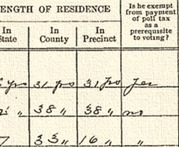 LENGTH OF RESIDENCE
Is he exempt
from payment
of poll tax
as a
prerequisite
to voting?
In
State
In
County
In
Precinct
yrs 31 yrs 31 yrs Yes
" 38 " 38 " no
33 " 16 "